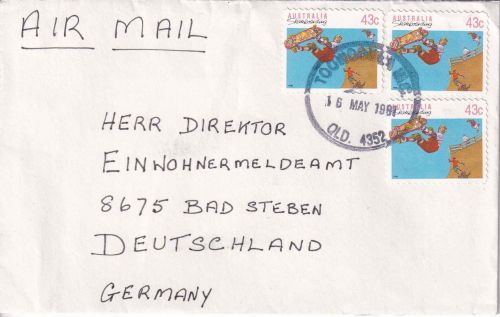 AIR MAIL
AUSTRALIA 43c
Skateboarding
AUSTRALIA 43c
Skateboarding
AUSTRALIA 43c
Skateboarding
16 MAY 199
QLD. 4352
HERR DIREKTOR
EINWOHNERMELDEAMT
8675 BAD STEBEN
DEUTSCHLAND
GERMANY